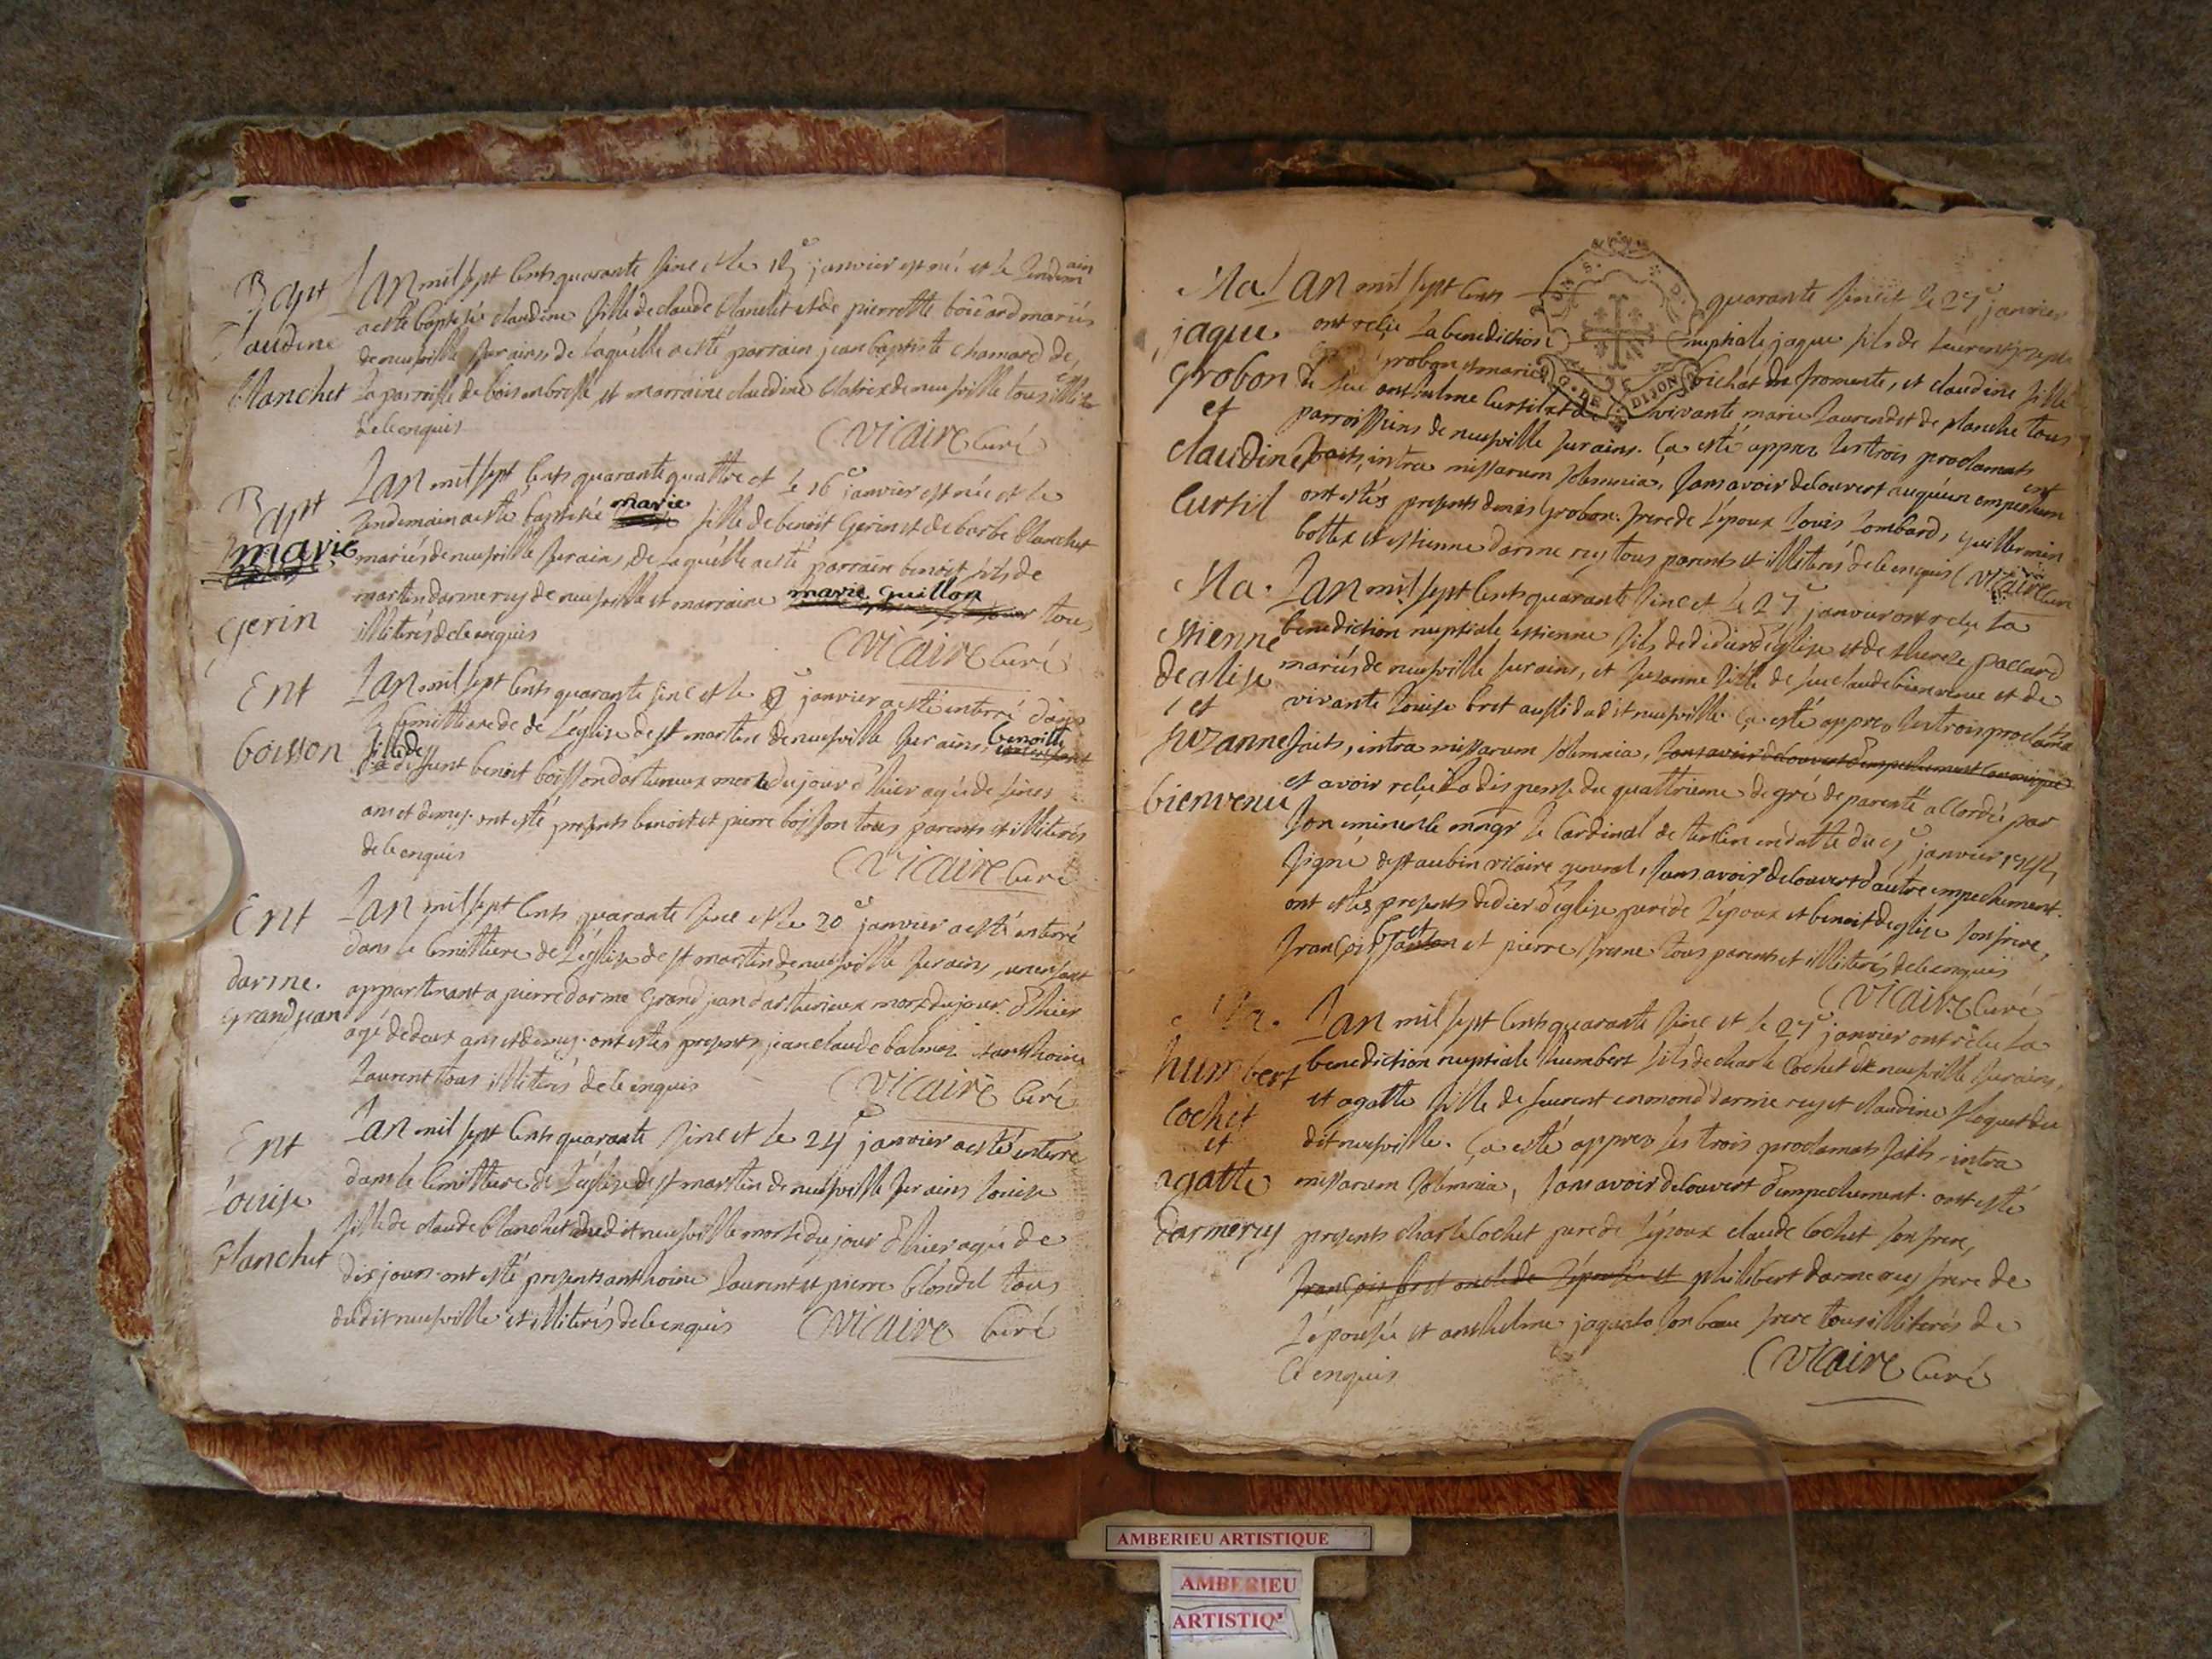 Bapt
claudine
blanchet
Lan mil sept cents quarante sinc et le 15e janvier est né et le lendemain
a esté baptisée claudine fille de claude blanchet et de pierrette boicard mariés
de neufville sur ains de laquelle a esté parrain jean baptiste chamard de
la parroisse de bois et marraine claudine de neufville tous illiterés
de ce enquis
Vicaire Curé
Bapt
marie
gerin
Lan mil sept cents quarante quattre et le 16e janvier est née et le
lendemain a esté baptisée marie fille de benoit Gerin et de barbe blanchet
mariés de neufville sur ains, de laquelle a esté parrain benoit fils de
martin darmerey de neufville et marraine marie guillon tous
illiterés de ce enquis
Vicaire Curé
Ent
boisson
Lan mil sept cents quarante sinc et le janvier a esté enterré dans
le cemittiere de de l'eglise de st martin de neufville sur ains benoitte
fille de defunt benoit boisson mort du jour d'hier agé de sincs
ans et demy. ont esté presents benoist et pierre boisson tous parents et illiterés
de ce enquis
Vicaire Curé
Ent
darme.
grand jean
Lan mil sept cents quarante sinc et le 20e janvier a esté enterré
dans le cemittiere de l'eglise de st martin de neufville sur ains, un enfant
appartenant a pierre darme Grand jean mort du jour d'hier
agé de deux ans et demy. ont estés presents, jean claude balmes anthoine
Laurent tous illiterés de ce enquis
Vicaire Curé
Ent
Louise
blanchet
Lan mil sept cents quarante sinc et le 24e janvier a esté enterré
dans le cemittiere de l'eglise de st martin de neufville sur ains louise
fille de claude blanchet dudit neufville morte du jour d'hier agé de
dix jours. ont esté presents anthoine Laurent et pierre blondel tous
dudit neufville et illiterés de ce enquis
Vicaire Curé
Ma
jaque
grobon
et
claudine
curtil
Lan mil sept cents quarante sinc et le 27e janvier
ont reçu la benediction nuptiale jaque fils de
grobon et marie bichat de fromente, et claudine fille
de feu anthelme curtil et de vivante marie Laurendet de planche tous
parroissiens de neufville sur ains. ça esté apprez les trois proclamats
faits, intra missarum solemnia, sans avoir decouvert auqueun empeschement
ont estés presents denis grobon frere de l'epoux louis lombard, guillermin
bottex et estienne darmerey tous parents et illiterés de ce enquis Vicaire Curé
G. DE DIJON
Ma.
estienne
deglise
et
suzanne
bienvenu
Lan mil sept cents quarante sinc et le 27e janvier ont reçu la
benediction nuptiale estienne fils de didier d'eglise et de thereze paccard
mariés de neufville sur ains, et suzanne fille de feu claude bienvenue et de
vivante louise bret aussi dudit neufville. ça esté apprez les trois proclamats
faits, intra missarum solemnia, sans avoir decouvert d'empeschement canonique
et avoir reçu la dispense du quattrieme degré de parenté accordée par
son eminence mngr le Cardinal de tencin en datte du janvier
signé de st aubin vicaire general, sans avoir decouvert d'autre empechement.
ont estés presents didier d'eglise pere de l'epoux et benoit deglise son frere,
françois bret et pierre tous parents et illiterés de ce enquis
Vicaire Curé
Ma.
humbert
cochet
et
agatte
darmerey
Lan mil sept cents quarante sinc et le 27e janvier ont reçu la
benediction nuptiale humbert fils de charle cochet de neufville sur ains,
et agatte fille de feu enmond darmerey et claudine du
dit neufville. ça esté apprez les trois proclamats faits, intra
missarum solemnia, sans avoir decouvert d'empechement. ont esté
presents charle cochet pere de l'epoux claude cochet son frere,
françois bret oncle de l'epousée et philibert darmerey frere de
l'epousée et anthelme son beau frere tous illiterés de
ce enquis
Vicaire Curé
AMBERIEU ARTISTIQUE
AMBERIEU
ARTISTIQ